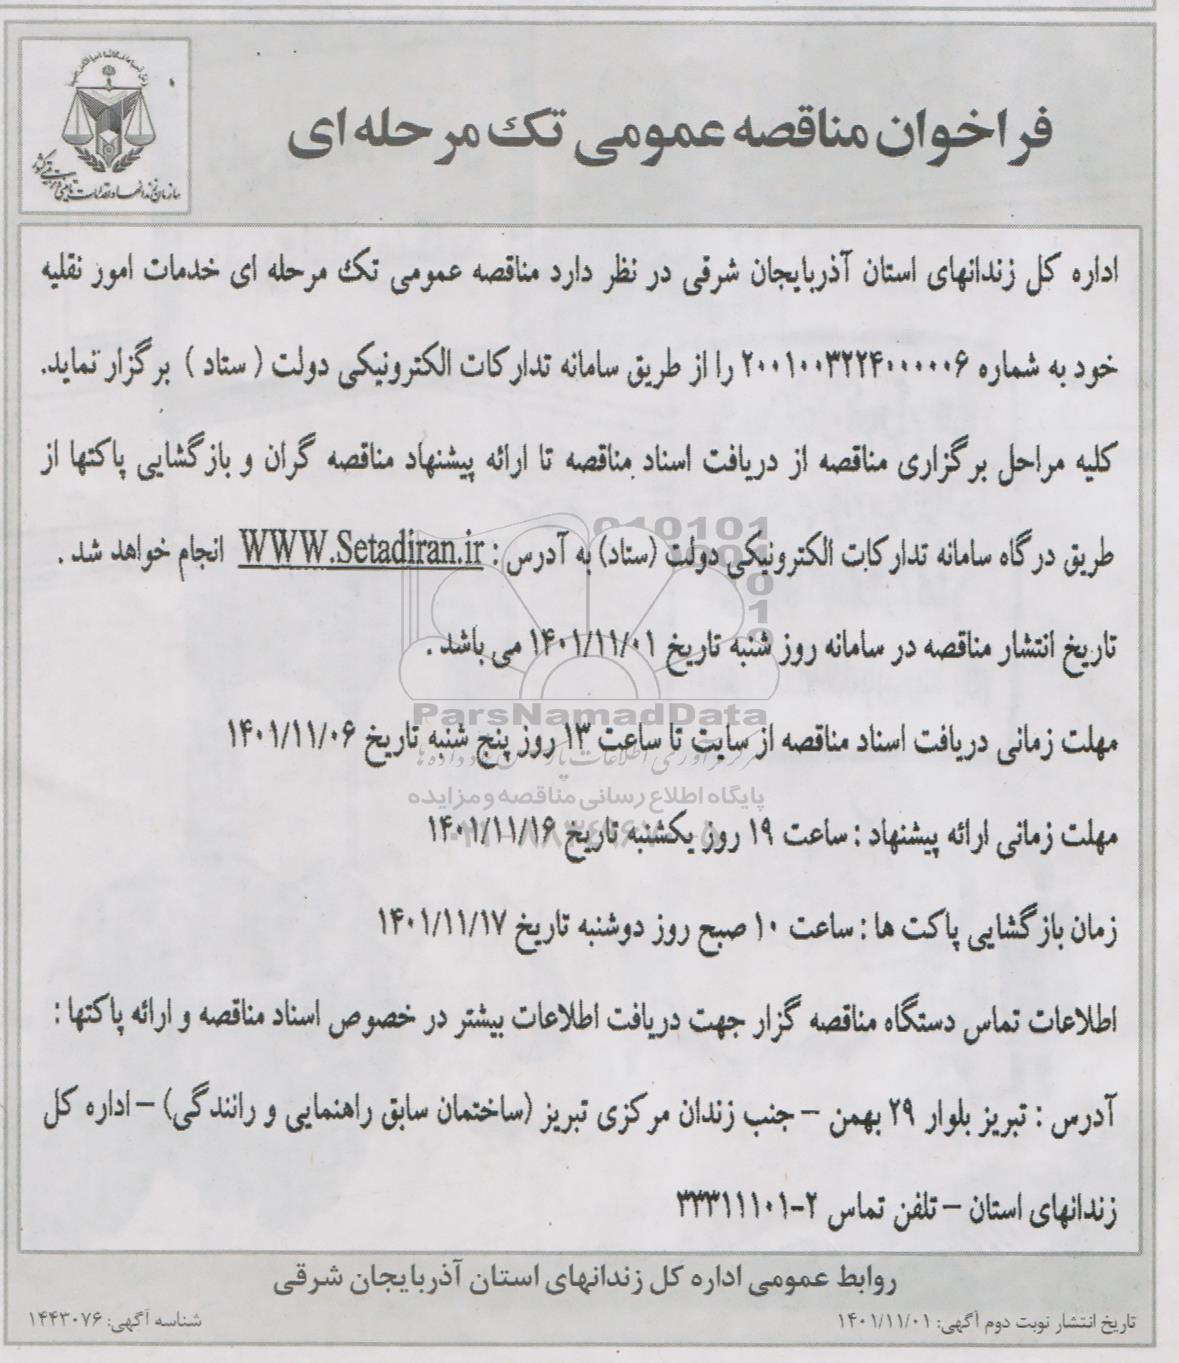 فراخوان مناقصه عمومی تک مرحله ای
سازمان زندانها و اقدامات تامینی و تربیتی کشور
اداره کل زندانهای استان آذربایجان شرقی در نظر دارد مناقصه عمومی تک مرحله ای خدمات امور نقلیه
خود به شماره ۲۰۰۱۰۰۳۲۲۴۰۰۰۰۰۶ را از طریق سامانه تدارکات الکترونیکی دولت ( ستاد ) برگزار نماید.
کلیه مراحل برگزاری مناقصه از دریافت اسناد مناقصه تا ارائه پیشنهاد مناقصه گران و بازگشایی پاکتها از
طریق درگاه سامانه تدارکات الکترونیکی دولت (ستاد) به آدرس : WWW.Setadiran.ir انجام خواهد شد .
تاریخ انتشار مناقصه در سامانه روز شنبه تاریخ ۱۴۰۱/۱۱/۰۱ می باشد .
ParsNamadData
مهلت زمانی دریافت اسناد مناقصه از سایت تا ساعت ۱۳ روز پنج شنبه تاریخ ۱۴۰۱/۱۱/۰۶
پایگاه اطلاع رسانی مناقصه و مزایده
مهلت زمانی ارائه پیشنهاد : ساعت ۱۹ روز یکشنبه تاریخ ۱۴۰۱/۱۱/۱۶
زمان بازگشایی پاکت ها : ساعت ۱۰ صبح روز دوشنبه تاریخ ۱۴۰۱/۱۱/۱۷
اطلاعات تماس دستگاه مناقصه گزار جهت دریافت اطلاعات بیشتر در خصوص اسناد مناقصه و ارائه پاکتها :
آدرس : تبریز بلوار ۲۹ بهمن – جنب زندان مرکزی تبریز (ساختمان سابق راهنمایی و رانندگی) – اداره کل
زندانهای استان – تلفن تماس ۲-۳۳۳۱۱۱۰۱
روابط عمومی اداره کل زندانهای استان آذربایجان شرقی
تاریخ انتشار نوبت دوم آگهی: ۱۴۰۱/۱۱/۰۱
شناسه آگهی: ۱۴۴۳۰۷۶